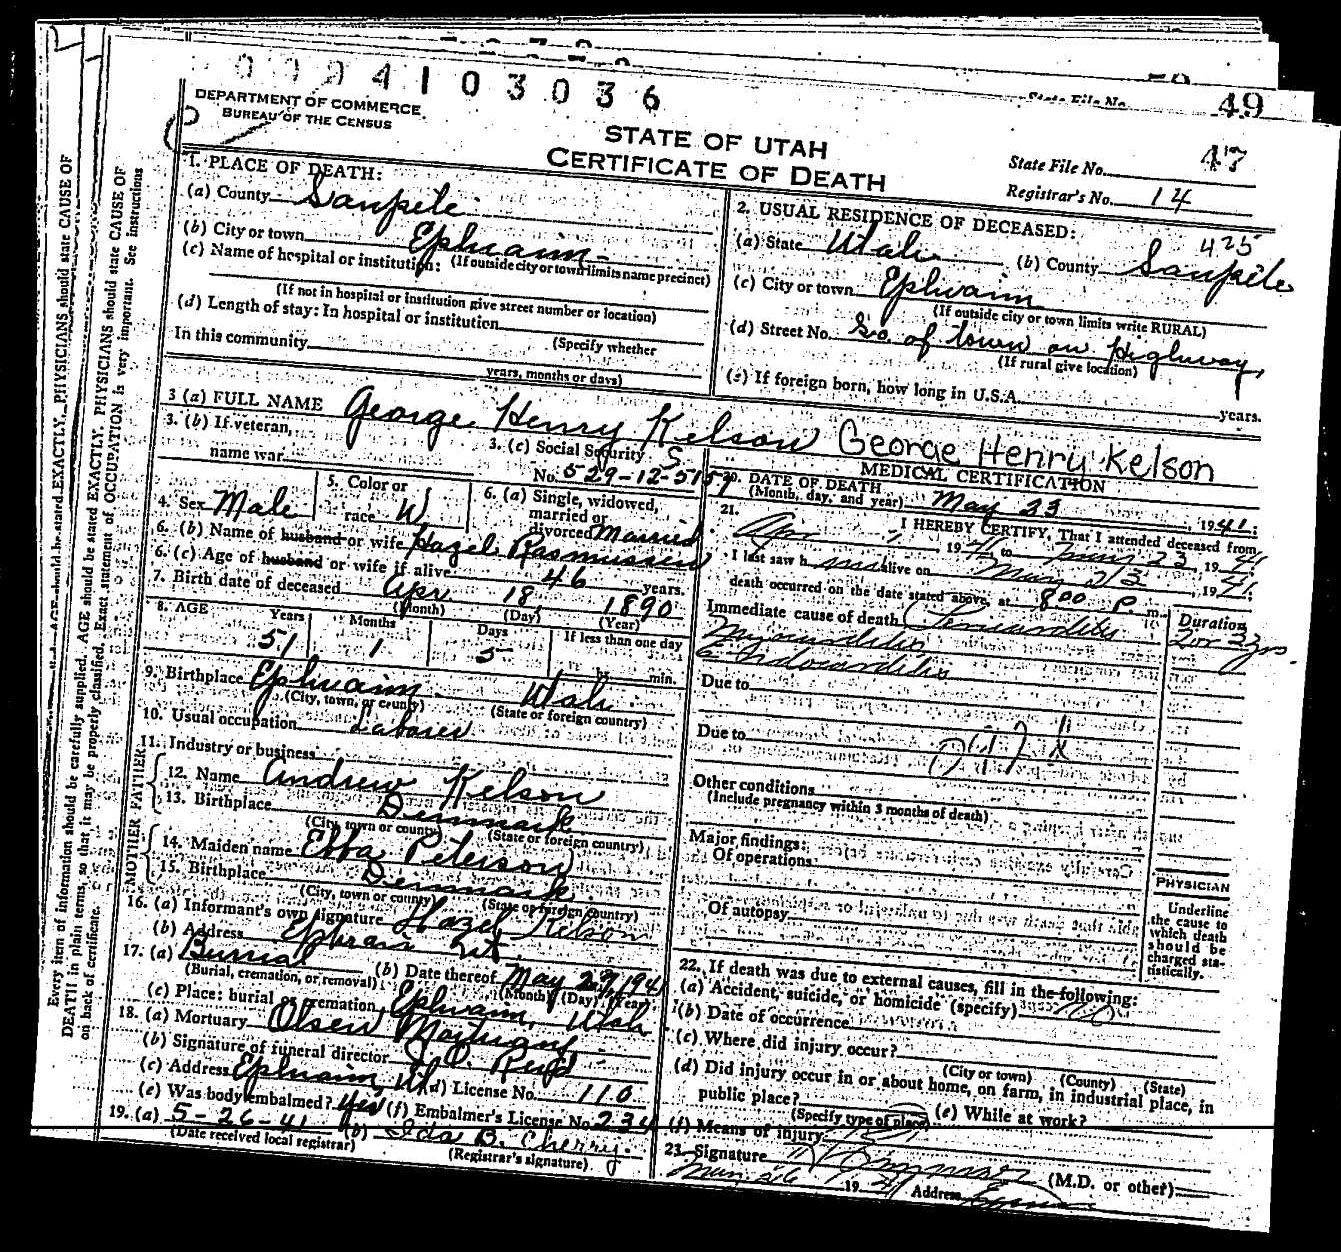 0094103036
49
State File No.
DEPARTMENT OF COMMERCE
BUREAU OF THE CENSUS
STATE OF UTAH
CERTIFICATE OF DEATH
State File No. 47
Registrar's No. 14
Every item of information should be carefully supplied. AGE should be stated EXACTLY. PHYSICIANS should state CAUSE OF
DEATH in plain terms, so that it may be properly classified. Exact statement of OCCUPATION is very important. See instructions
on back of certificate.
1. PLACE OF DEATH:
(a) County Sanpete
(b) City or town Ephraim
(If outside city or town limits name precinct)
(c) Name of hospital or institution:
(If not in hospital or institution give street number or location)
(d) Length of stay: In hospital or institution
(Specify whether
In this community
years, months or days)
2. USUAL RESIDENCE OF DECEASED:
425
(a) State Utah (b) County Sanpete
(c) City or town Ephraim
(If outside city or town limits write RURAL)
(d) Street No. So. of town on Highway,
(If rural give location)
(e) If foreign born, how long in U.S.A. years.
3 (a) FULL NAME George Henry Kelson George Henry Kelson
3. (b) If veteran,
name war
3. (c) Social Security
No. 529-12-5157
4. Sex Male
5. Color or
race W
6. (a) Single, widowed,
married or
divorced Married
6. (b) Name of husband or wife Hazel Rasmussen
6. (c) Age of husband or wife if alive 46 years.
7. Birth date of deceased Apr 18, 1890
(Month) (Day) (Year)
8. AGE Years Months Days If less than one day
51 1 5
min.
9. Birthplace Ephraim Utah
(City, town, or county) (State or foreign country)
10. Usual occupation Laborer
11. Industry or business
FATHER
12. Name Andrew Kelson
13. Birthplace Denmark
(City, town or county) (State or foreign country)
MOTHER
14. Maiden name Ebba Peterson
15. Birthplace Denmark
(City, town or county) (State or foreign country)
16. (a) Informant's own signature Hazel Kelson
(b) Address Ephraim Ut.
17. (a) Burial (b) Date thereof May
(Burial, cremation, or removal) (Month) (Day) (Year)
(c) Place: burial or cremation Ephraim, Utah
18. (a) Mortuary Olsen Mortuary
(b) Signature of funeral director
(c) Address Ephraim, Ut (d) License No. 110
(e) Was body embalmed? Yes (f) Embalmer's License No. 234
19. (a) 5-26-41 (b) Ida B. Cherry.
(Date received local registrar) (Registrar's signature)
MEDICAL CERTIFICATION
20. DATE OF DEATH
(Month, day, and year) May 23, 1941:
21. I HEREBY CERTIFY, That I attended deceased from
Apr 1941 to May 23, 1941
I last saw him alive on May 23, 1941:
death occurred on the date stated above, at 8:00 P m.
Immediate cause of death
Myocarditis
Endocarditis
Duration
2 or 3 yrs.
Due to
Due to
Other conditions
(Include pregnancy within 3 months of death)
Major findings:
Of operations
Of autopsy
PHYSICIAN
Underline
the cause to
which death
should be
charged sta-
tistically.
22. If death was due to external causes, fill in the following:
(a) Accident, suicide, or homicide (specify) no
(b) Date of occurrence
(c) Where did injury occur?
(City or town) (County) (State)
(d) Did injury occur in or about home, on farm, in industrial place, in
public place? (e) While at work?
(Specify type of place)
(f) Means of injury
23. Signature (M.D. or other)
May 26 1941 Address